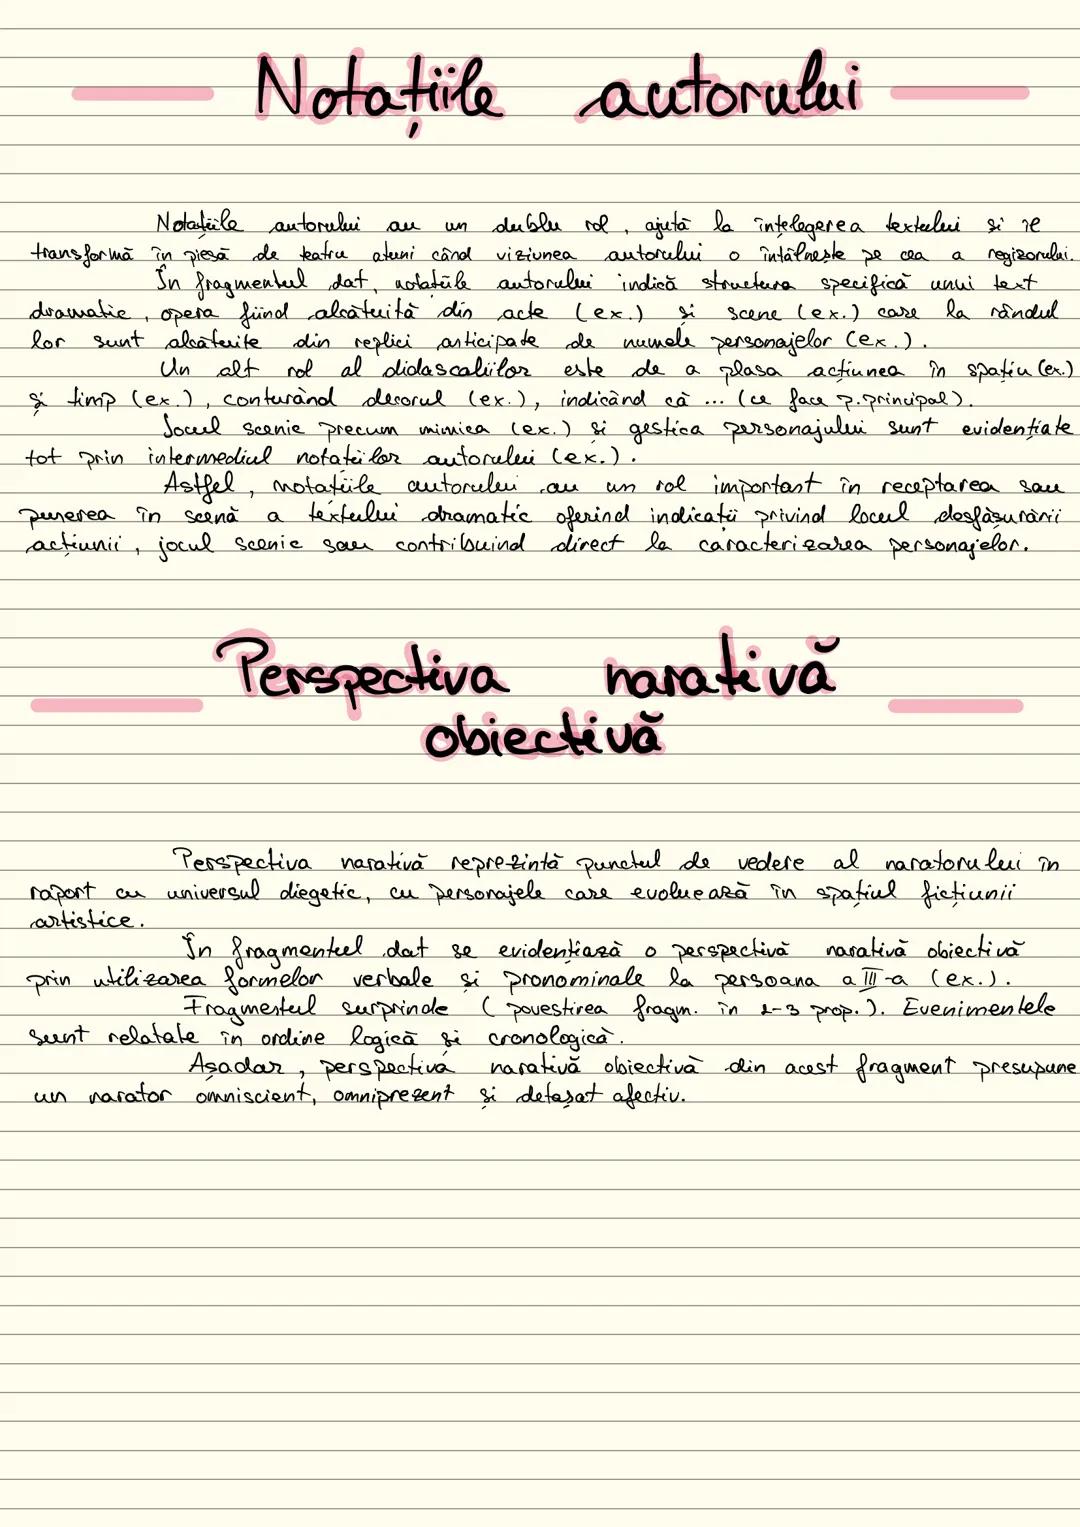 Notațiile autorului
Notațiile autorului au un dublu rol, ajută la înțelegerea textului și îl
transformă în piesă de teatru atunci când viziunea autorului o întâlnește pe cea a regizorului.
În fragmentul dat, notațiile autorului indică structura specifică unui text
dramatic, opera fiind alcătuită din acte (ex.) și scene (ex.) care la rândul
lor sunt alcătuite din replici anticipate de numele personajelor (ex.).
Un alt rol al didascaliilor este de a plasa acțiunea în spațiu (ex.)
și timp (ex.), conturând decorul (ex.), indicând că ... (ce face p.principal).
Jocul scenic precum mimica (ex.) și gestica personajului sunt evidențiate
tot prin intermediul notațiilor autorului (ex.).
Astfel, notațiile autorului au un rol important în receptarea sau
punerea în scenă a textului dramatic oferind indicații privind locul desfășurării
acțiunii, jocul scenic sau contribuind direct la caracterizarea personajelor.
Perspectiva narativă
obiectivă
Perspectiva narativă reprezintă punctul de vedere al naratorului în
raport cu universul diegetic, cu personajele care evoluează în spațiul ficțiunii
artistice.
În fragmentul dat se evidențiază o perspectivă narativă obiectivă
prin utilizarea formelor verbale și pronominale la persoana a III-a (ex.).
Fragmentul surprinde (povestirea fragm. în 2-3 prop.). Evenimentele
sunt relatate în ordine logică și cronologică.
Așadar, perspectiva narativă obiectivă din acest fragment presupune
un narator omniscient, omniprezent și detașat afectiv.